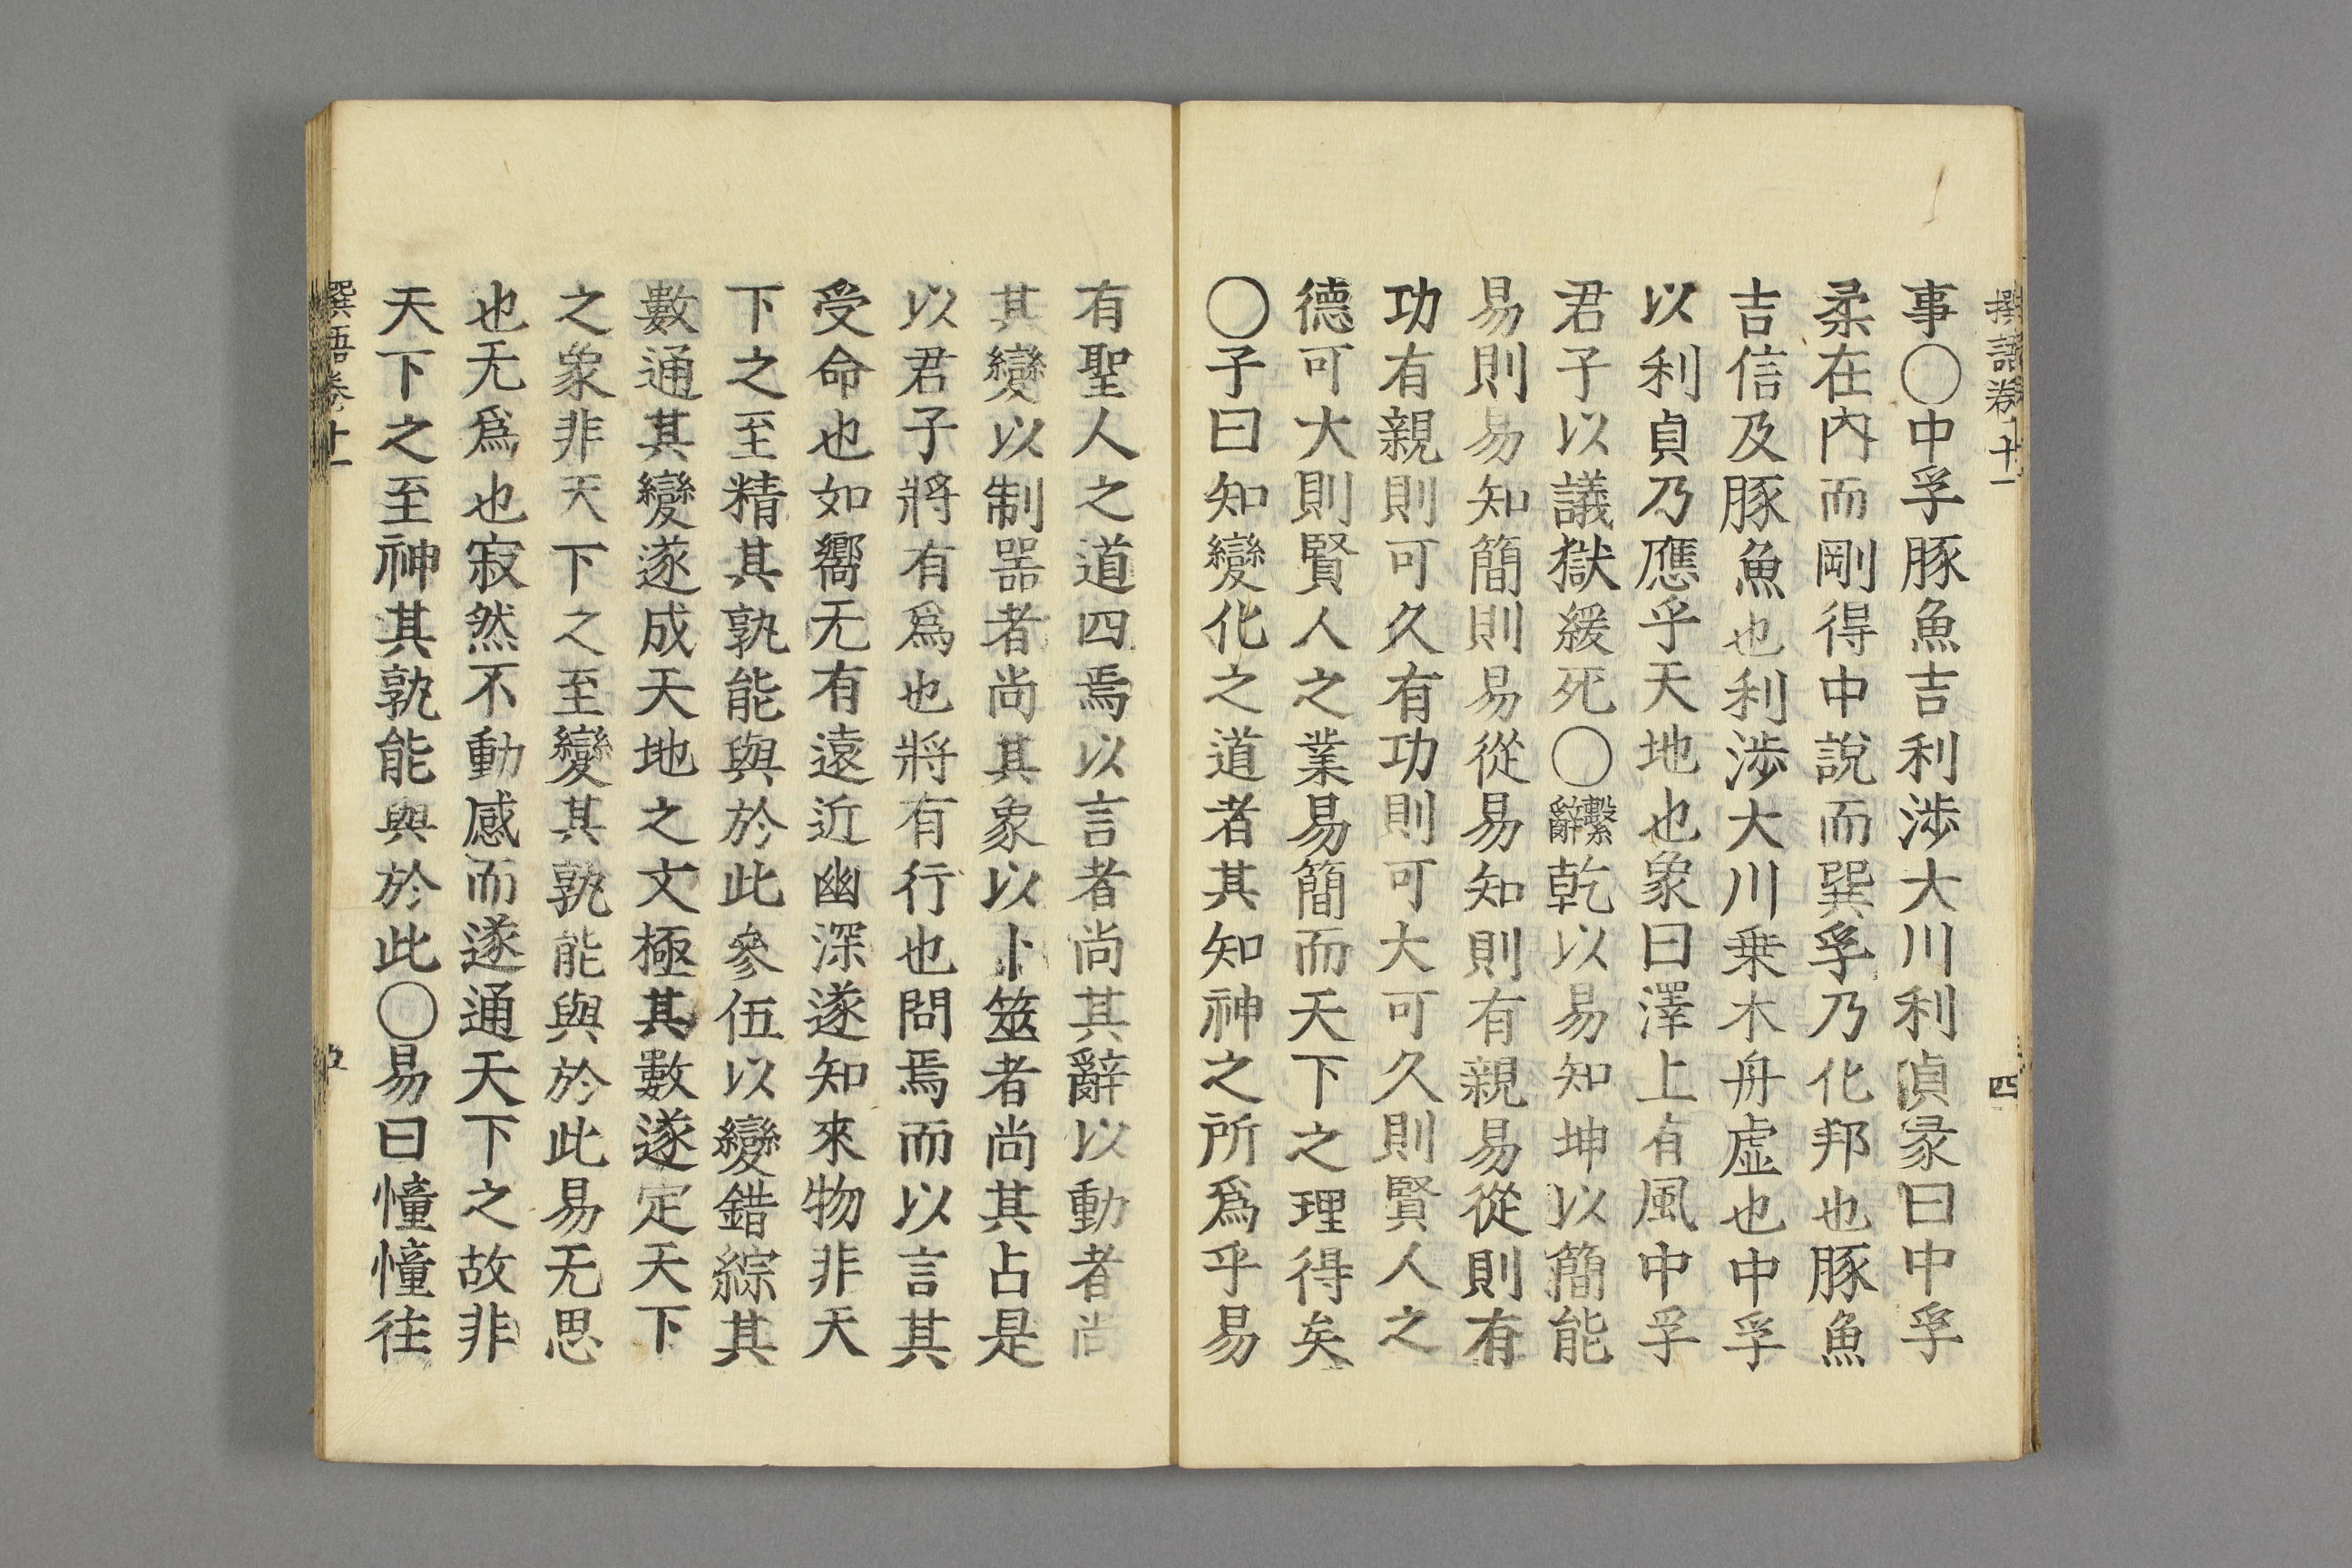 撰語卷十一
四
事〇中孚豚魚吉利涉大川利貞彖曰中孚
柔在內而剛得中說而巽孚乃化邦也豚魚
吉信及豚魚也利涉大川乗木舟虛也中孚
以利貞乃應乎天地也象曰澤上有風中孚
君子以議獄緩死〇繫辭乾以易知坤以簡能
易則易知簡則易從易知則有親易從則有
功有親則可久有功則可大可久則賢人之
德可大則賢人之業易簡而天下之理得矣
〇子曰知變化之道者其知神之所爲乎易
有聖人之道四焉以言者尚其辭以動者尚
其變以制噐者尚其象以卜筮者尚其占是
以君子將有爲也將有行也問焉而以言其
受命也如嚮无有遠近幽深遂知來物非天
下之至精其孰能與於此參伍以變錯綜其
數通其變遂成天地之文極其數遂定天下
之象非天下之至變其孰能與於此易无思
也无爲也寂然不動感而遂通天下之故非
天下之至神其孰能與於此〇易曰憧憧往
撰語卷十一
五